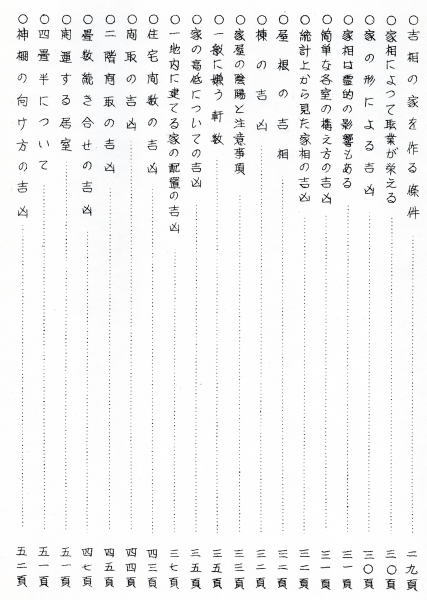 ○吉相の家を作る條件……二九頁
○家相によつて職業が栄える……三〇頁
○家の形による吉凶……三〇頁
○家相は霊的の影響もある……三一頁
○簡単な各室の構え方の吉凶……三一頁
○統計上から見た家相の吉凶……三二頁
○屋根の吉相……三二頁
○棟の吉凶……三二頁
○家屋の陰陽と注意事項……三三頁
○一般に嫌う軒数……三五頁
○家の高低についての吉凶……三五頁
○一地内に建てる家の配置の吉凶……三七頁
○住宅間数の吉凶……四三頁
○間取の吉凶……四四頁
○二階間取の吉凶……四五頁
○畳数続き合せの吉凶……四七頁
○開運する居室……五一頁
○四畳半について……五一頁
○神棚の向け方の吉凶……五二頁